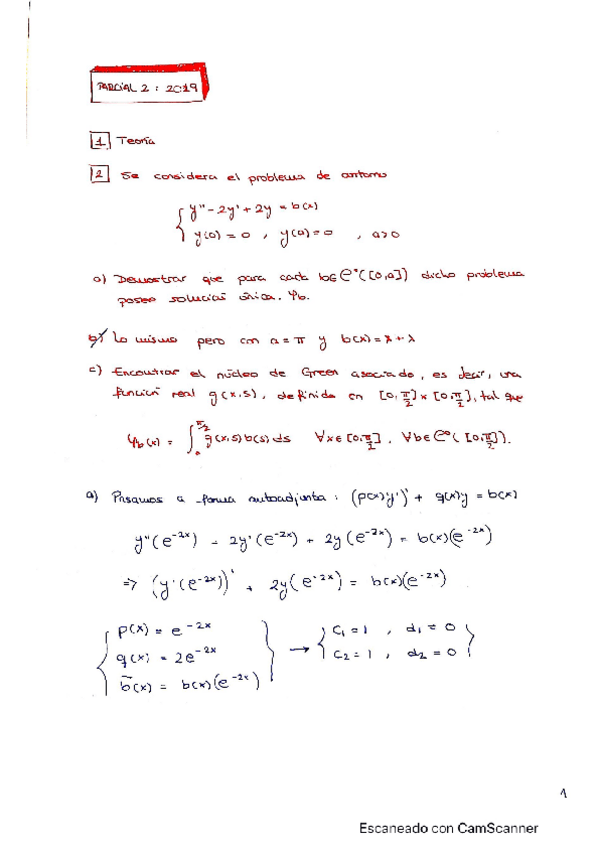 PARCIAL 2 : 2019
1 Teoría
2 Se considera el problema de contorno
{ y'' - 2y' + 2y = b(x)
y(0) = 0 , y(a) = 0 , a>0
a) Demostrar que para cada b∈C⁰([0,a]) dicho problema
posee solución única, φb.
b) Lo mismo pero con a = π y b(x) = x + λ
c) Encontrar el núcleo de Green asociado, es decir, una
función real g(x,s), definida en [0,π/2]×[0,π/2], tal que
φb(x) = ∫₀^{π/2} g(x,s)b(s)ds ∀x∈[0,π/2], ∀b∈C⁰([0,π/2]).
a) Pasamos a forma autoadjunta : (p(x)y')' + q(x)y = b(x)
y''(e^{-2x}) - 2y'(e^{-2x}) + 2y(e^{-2x}) = b(x)(e^{-2x})
=> (y'(e^{-2x}))' + 2y(e^{-2x}) = b(x)(e^{-2x})
{ p(x) = e^{-2x}
q(x) = 2e^{-2x}
b̃(x) = b(x)(e^{-2x}) } → { c₁ = 1 , d₁ = 0
c₂ = 1 , d₂ = 0 }
1
Escaneado con CamScanner